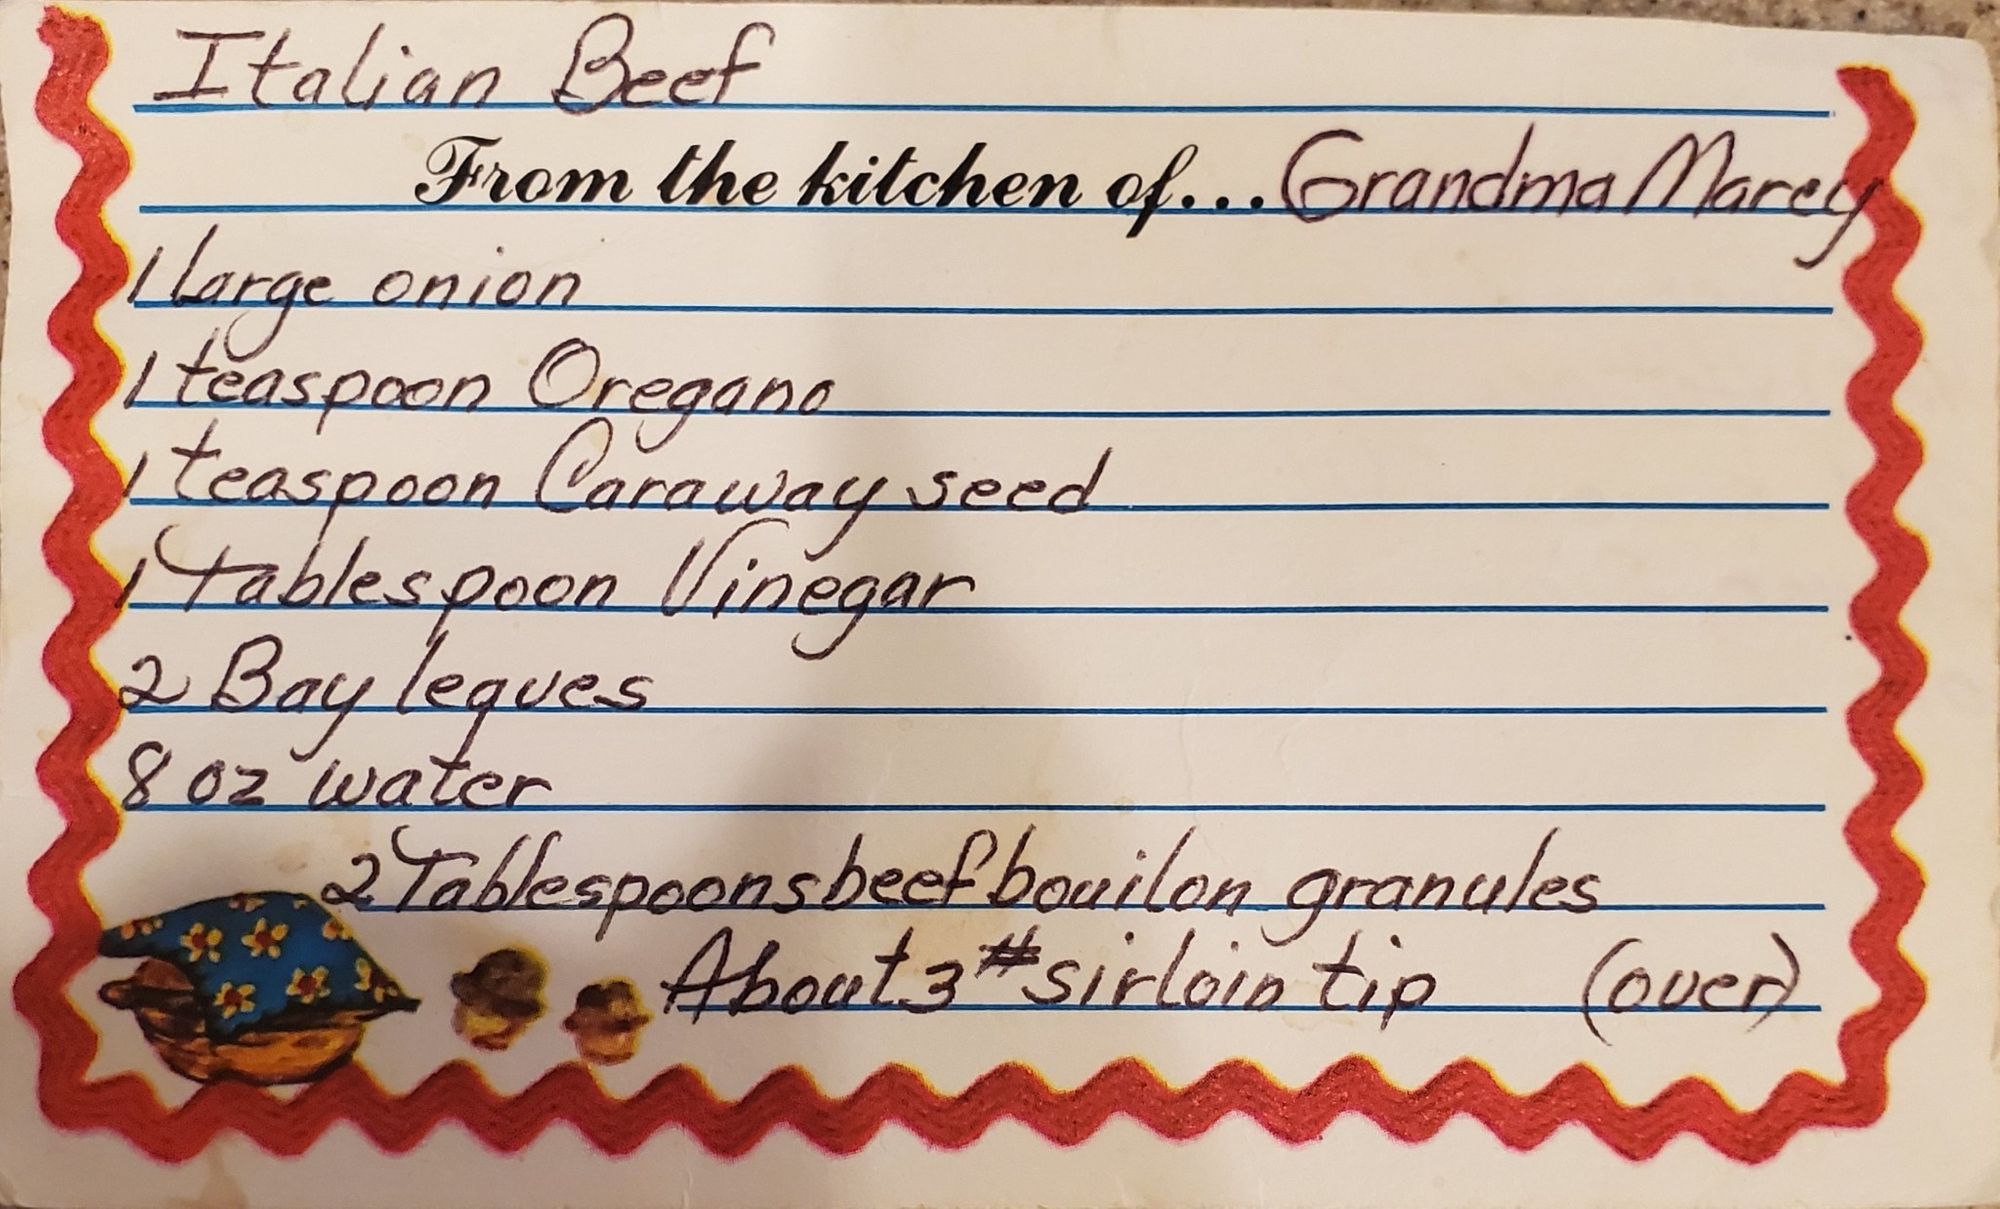 Italian Beef
From the kitchen of... Grandma Marey
1 large onion
1 teaspoon Oregano
1 teaspoon Caraway seed
1 Tablespoon Vinegar
2 Bay leaves
8 oz water
2 Tablespoons beef bouilon granules
About 3# sirloin tip (over)